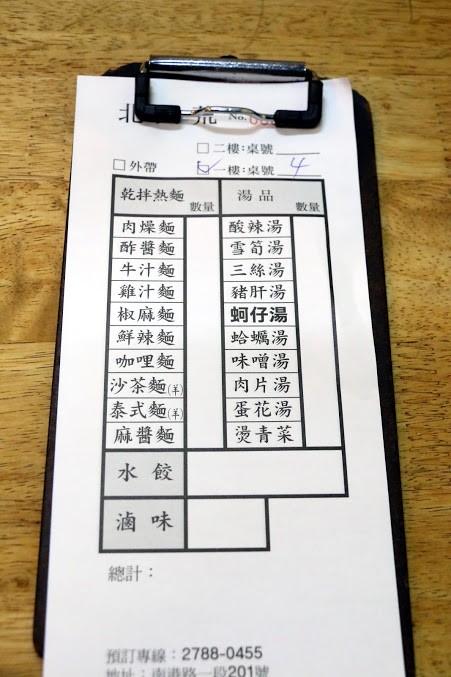 北 號 No.
□二樓:桌號
□外帶 ☑一樓:桌號 4
乾拌熱麵 數量 湯品 數量
肉燥麵 酸辣湯
酢醬麵 雪筍湯
牛汁麵 三絲湯
雞汁麵 豬肝湯
椒麻麵 蚵仔湯
鮮辣麵 蛤蠣湯
咖哩麵 味噌湯
沙茶麵(羊) 肉片湯
泰式麵(羊) 蛋花湯
麻醬麵 燙青菜
水餃
滷味
總計:
預訂專線:2788-0455
地址:南港路一段201號